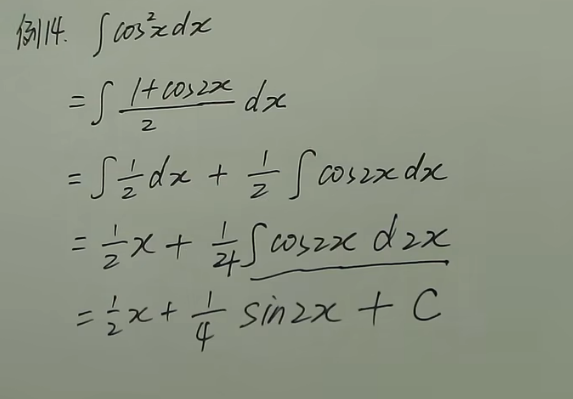 例14. ∫cos²xdx
=∫(1+cos2x)/2 dx
=∫1/2dx + 1/2∫cos2xdx
=1/2x + 1/4∫cos2x d2x
=1/2x + 1/4 sin2x + C